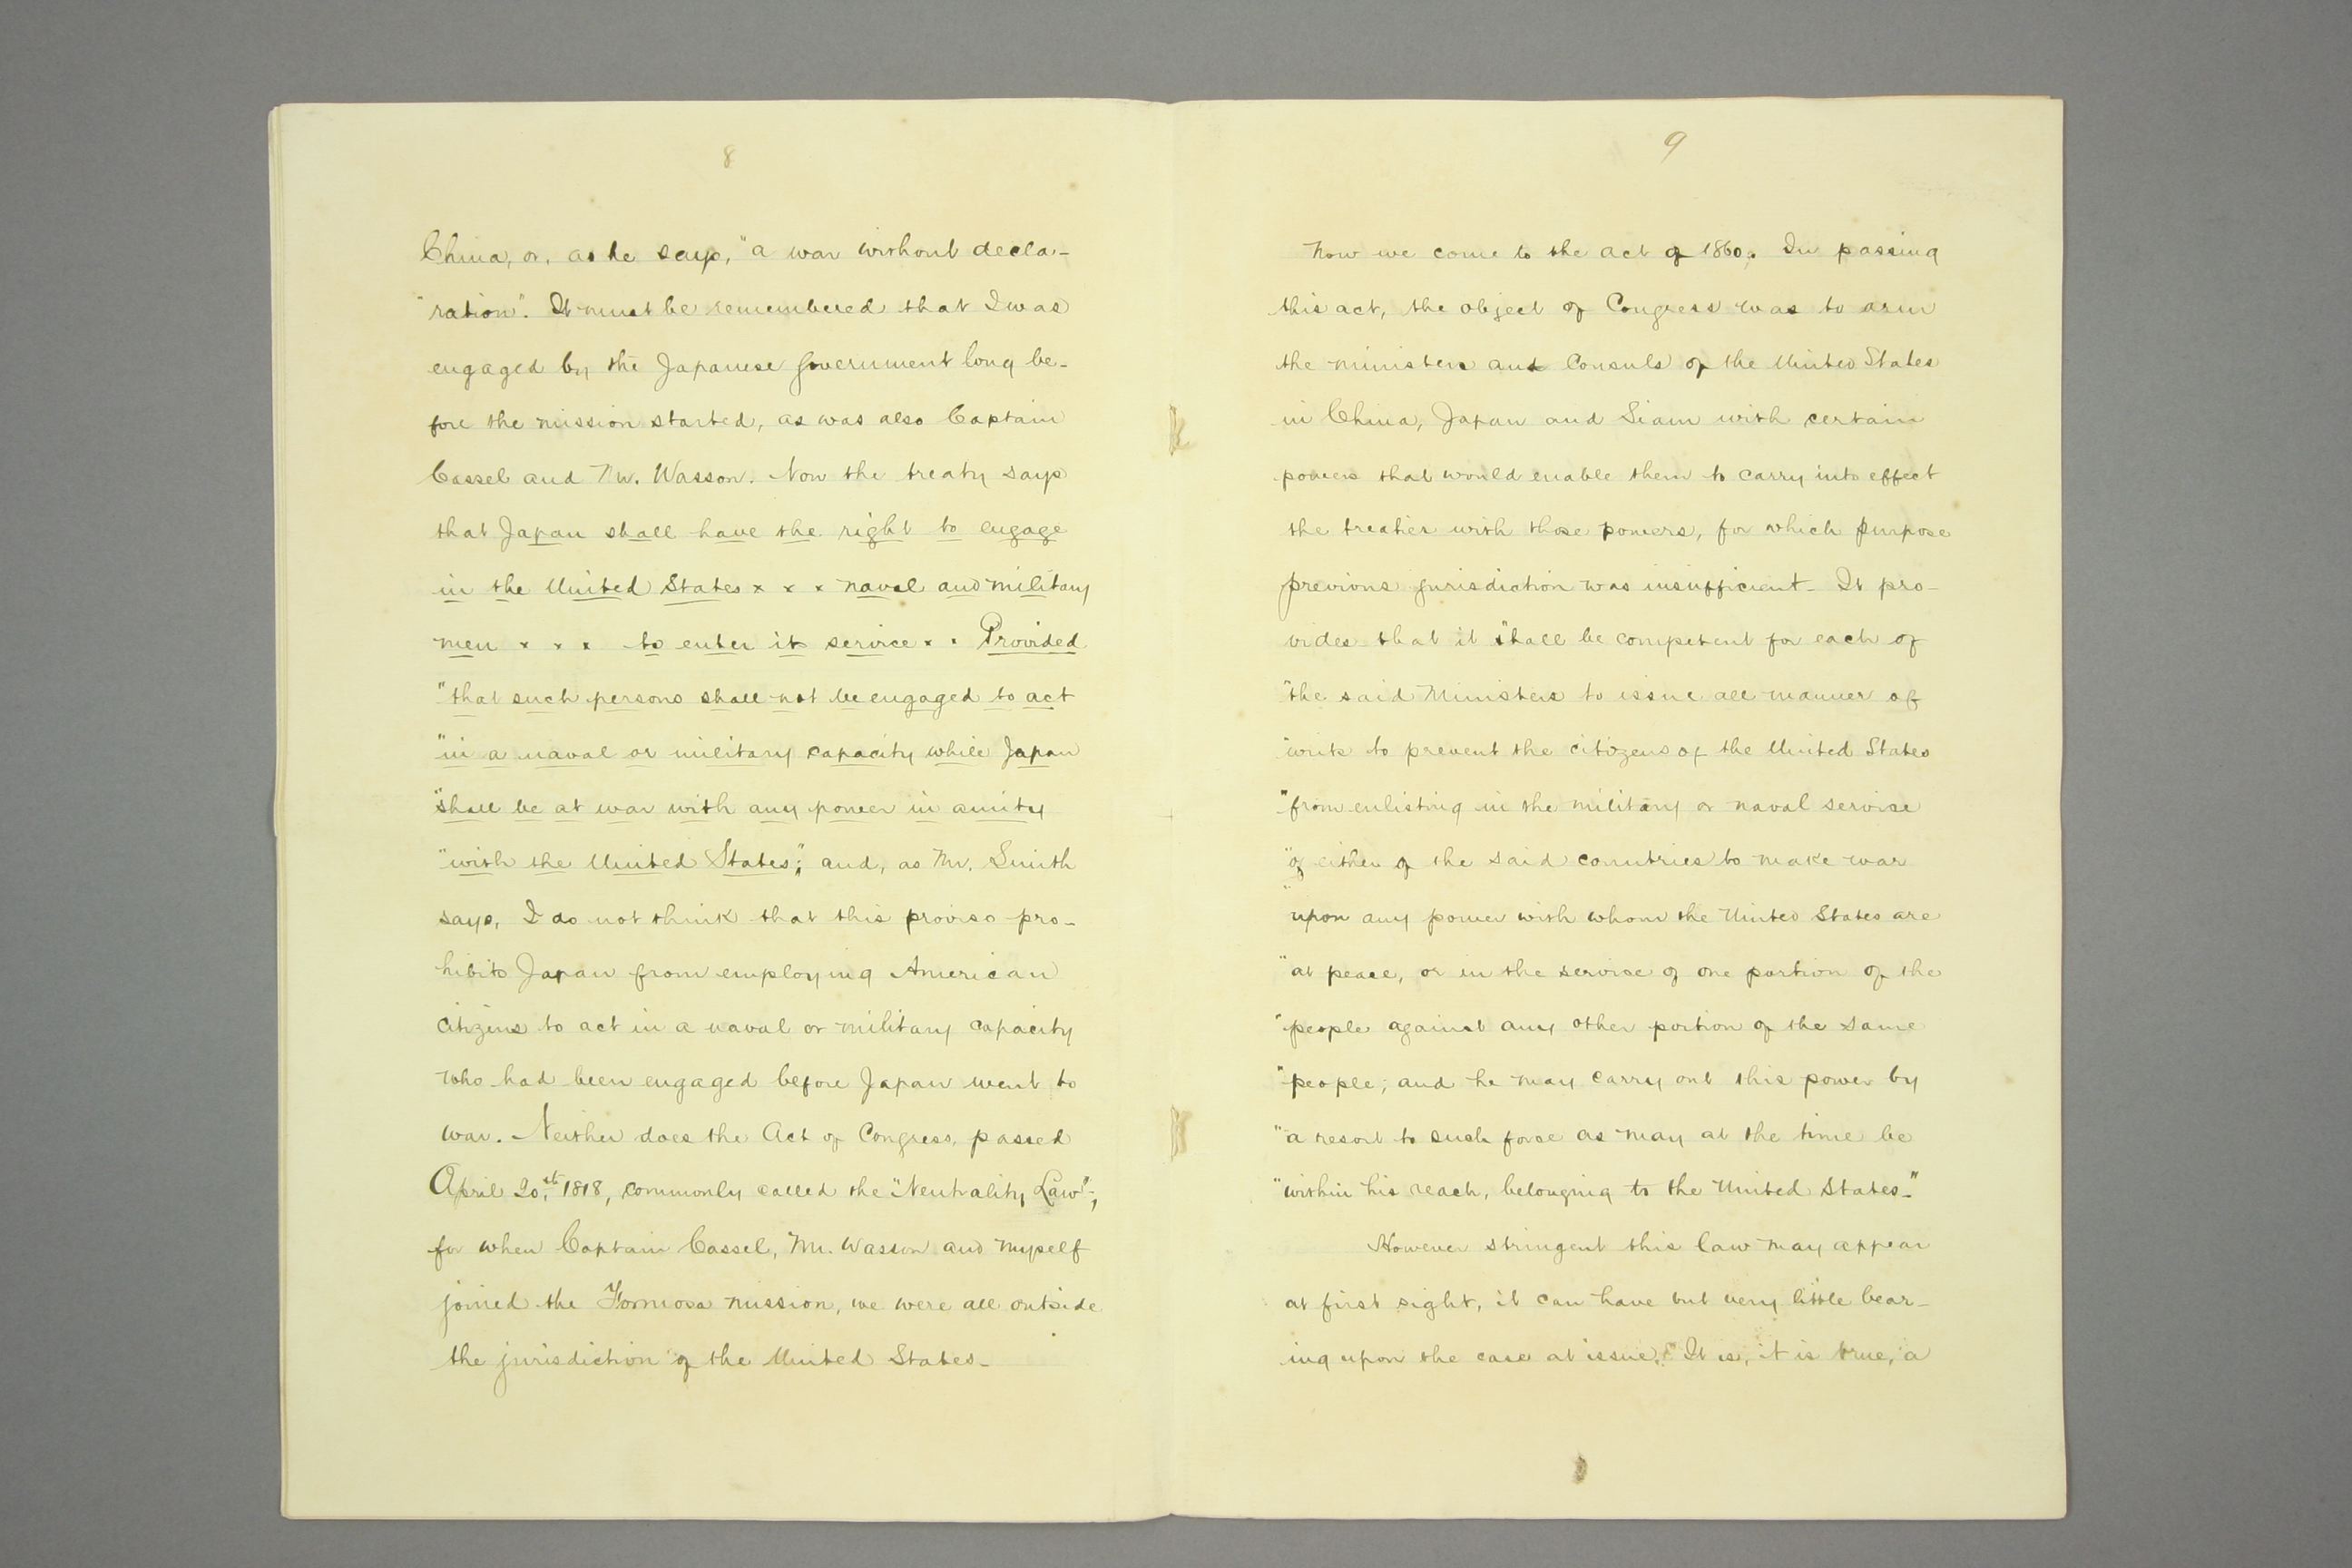 8
China, or, as he says, "a war without decla-
"ration". It must be remembered that I was
engaged by the Japanese Government long be-
fore the mission started, as was also Captain
Cassel and Mr. Wasson. Now the treaty says
that Japan shall have the right to engage
in the United States x x x naval and military
men x x x to enter its service x x Provided
"that such persons shall not be engaged to act
"in a naval or military capacity while Japan
"shall be at war with any power in amity
"with the United States;" and, as Mr. Smith
says, I do not think that this proviso pro-
hibits Japan from employing American
Citizens to act in a naval or military capacity
who had been engaged before Japan went to
war. Neither does the Act of Congress, passed
April 20,th 1818, commonly called the "Neutrality Law";
for when Captain Cassel, Mr. Wasson and myself
joined the Formosa mission, we were all outside
the jurisdiction of the United States-
9
Now we come to the act of 1860. In passing
this act, the object of Congress was to arm
the ministers and Consuls of the United States
in China, Japan and Siam with certain
powers that would enable them to carry into effect
the treaties with those powers, for which purpose
previous jurisdiction was insufficient- It pro-
vides that it "shall be competent for each of
"the said Ministers to issue all manner of
"writs to prevent the citizens of the United States
"from enlisting in the military or naval service
"of either of the said countries to make war
"upon any power with whom the United States are
"at peace, or in the service of one portion of the
"people against any other portion of the same
"people; and he may carry out this power by
"a resort to such force as may at the time be
"within his reach, belonging to the United States-"
However stringent this law may appear
at first sight, it can have but very little bear-
ing upon the case at issue. It is, it is true, a